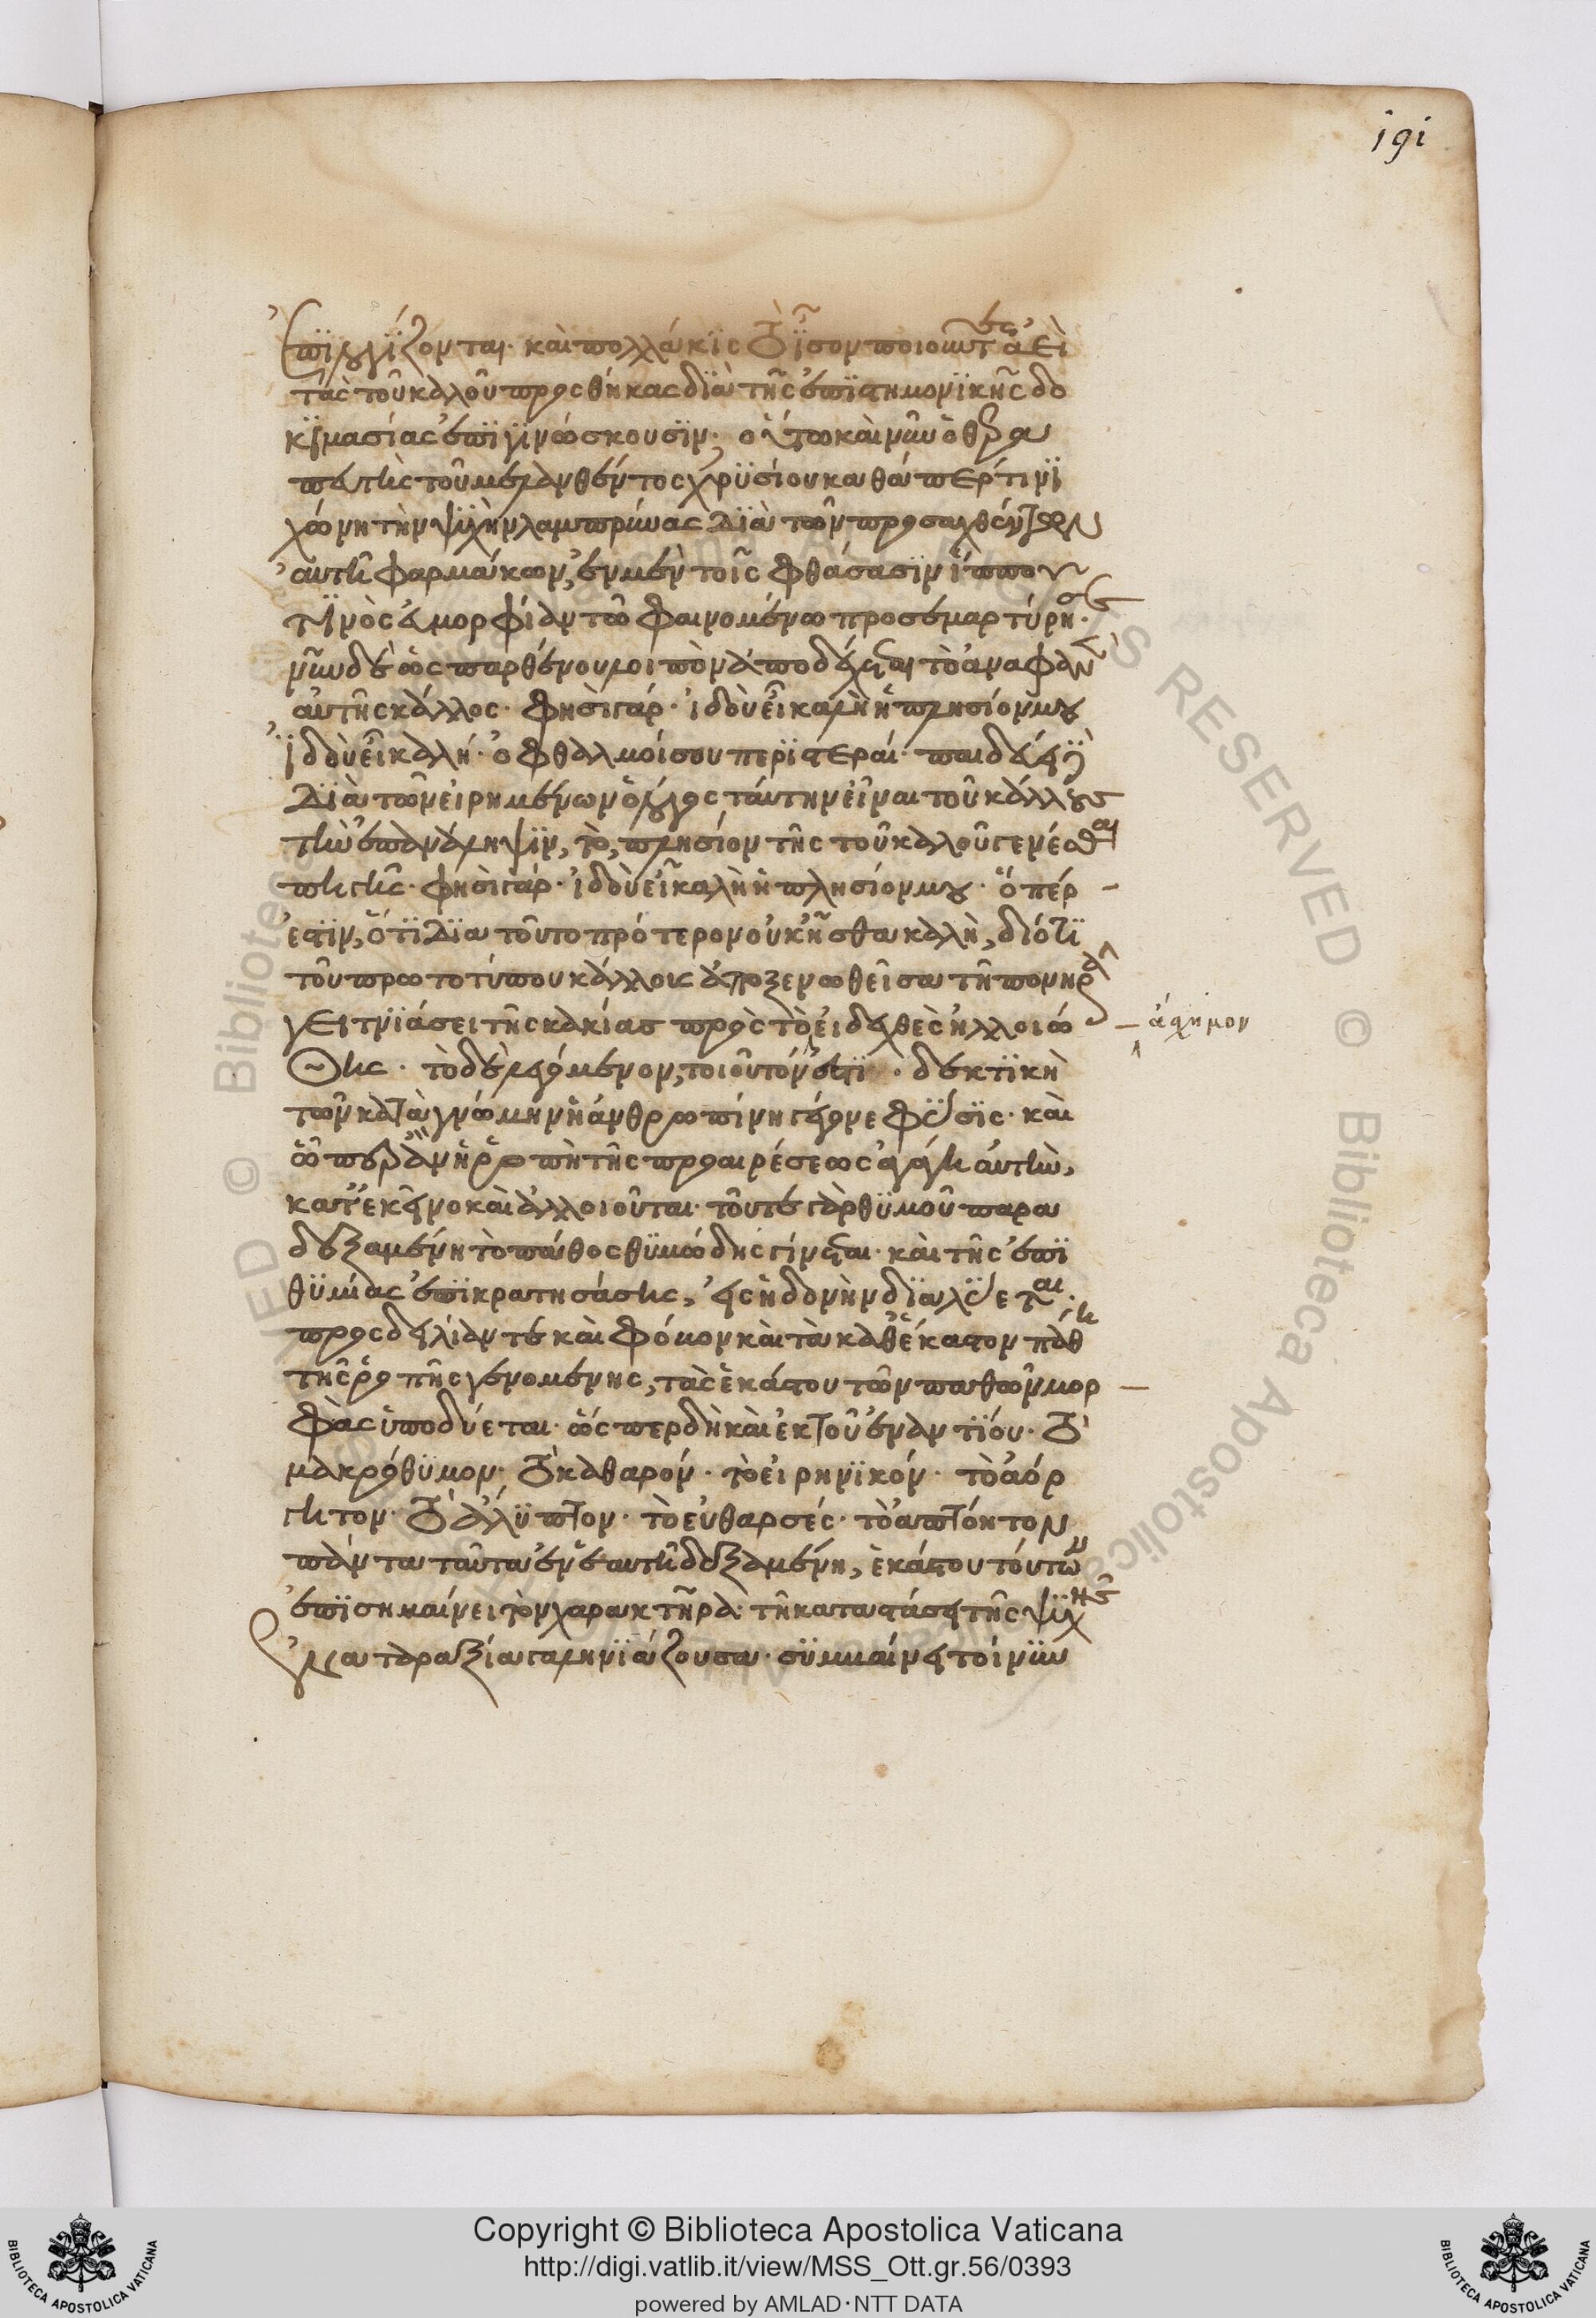 191
ἐπιλογίζονται· καὶ πολλάκις τὸ ἴσον ποιοῦντες ἀεὶ
τὰς τοῦ καλοῦ προσθήκας διὰ τῆς ἐπιστημονικῆς δο
κιμασίας ἐπιγινώσκουσιν· οὕτω καὶ νῦν ὁ θερα
πευτὴς τοῦ μελανθέντος χρυσίου καθάπερ τινὶ
χώνῃ τὴν ψυχὴν λαμπρύνας διὰ τῶν προσαχθέντων
αὐτῇ φαρμάκων, ἐν μὲν τοῖς φθάσασιν ἵππου
τινὸς εὐμορφίαν τῷ φαινομένῳ προσεμαρτύρησε·
νῦν δὲ ὡς παρθένου λοιπὸν ἀποδέχεται τὸ ἀναφανὲν
αὐτῆς κάλλος· φησὶ γάρ· ἰδοὺ εἶ καλὴ ἡ πλησίον μου
ἰδοὺ εἶ καλή· ὀφθαλμοί σου περιστεραί· παιδεύει
διὰ τῶν εἰρημένων ὁ λόγος ταύτην εἶναι τοῦ κάλλους
τὴν ἐπανάληψιν, τὸ, πλησίον τῆς τοῦ καλοῦ γενέσθαι
πηγῆς· φησὶ γάρ· ἰδοὺ εἶ καλὴ ἡ πλησίον μου· ὅπέρ
ἐστιν, ὅτι διὰ τοῦτο πρότερον οὐκ ἦσθα καλὴ, διότι
τοῦ πρωτοτύπου κάλλους ἀποξενωθεῖσα τῇ πονηρᾷ
γειτνιάσει τῆς κακίας πρὸς τὸ εἰδεχθὲς ἠλλοιώ
θης· τὸ δὲ λεγόμενον, τοιοῦτόν ἐστι· δεκτικὴ
τῶν κατὰ γνώμην ἡ ἀνθρωπίνη γέγονε φύσις· καὶ
ᾧπερ ἂν ἡ ῥοπὴ τῆς προαιρέσεως ἄγῃ αὐτὴν,
κατ' ἐκεῖνο καὶ ἀλλοιοῦται· τοῦ τε γὰρ θυμοῦ παρα
δεξαμένη τὸ πάθος θυμώδης γίνεται· καὶ τῆς ἐπι
θυμίας ἐπικρατησάσης, εἰς ἡδονὴν διαλύεται·
πρὸς δειλίαν τε καὶ φόβον καὶ τὰ καθ' ἕκαστον πάθη
τῆς ῥοπῆς γενομένης, τὰς ἑκάστου τῶν παθῶν μορ
φὰς ὑποδύεται· ὥσπερ δὴ καὶ ἐκ τοῦ ἐναντίου· τὸ
μακρόθυμον· τὸ καθαρόν· τὸ εἰρηνικόν· τὸ ἀόρ
γητον· τὸ ἀλύπητον· τὸ εὐθαρσές· τὸ ἀπτόητον
πάντα ταῦτα ἐν ἑαυτῇ δεξαμένη, ἑκάστου τούτων
ἐπισημαίνει τὸν χαρακτῆρα τῇ καταστάσει τῆς ψυχῆς
ἐν ἀταραξίᾳ γαληνιάζουσα· συμβαίνει τοίνυν
ἄσχημον
Copyright © Biblioteca Apostolica Vaticana
http://digi.vatlib.it/view/MSS_Ott.gr.56/0393
powered by AMLAD·NTT DATA